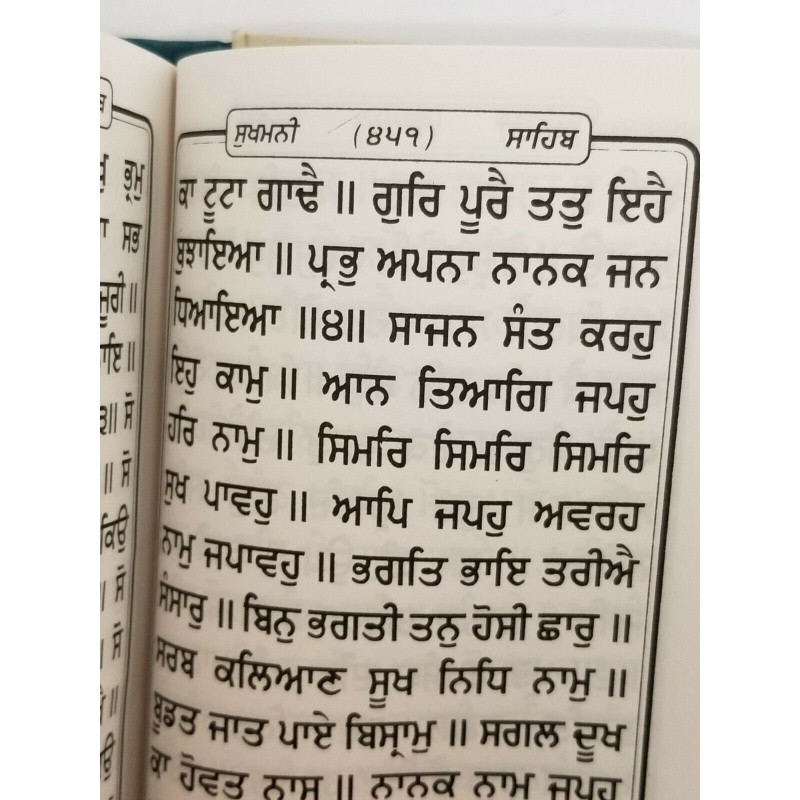 ਸੁਖਮਨੀ (੪੫੧) ਸਾਹਿਬ
ਕਾ ਟੂਟਾ ਗਾਢੈ ॥ ਗੁਰਿ ਪੂਰੈ ਤਤੁ ਇਹੈ
ਬੁਝਾਇਆ ॥ ਪ੍ਰਭੁ ਅਪਨਾ ਨਾਨਕ ਜਨ
ਧਿਆਇਆ ॥੪॥ ਸਾਜਨ ਸੰਤ ਕਰਹੁ
ਇਹੁ ਕਾਮੁ ॥ ਆਨ ਤਿਆਗਿ ਜਪਹੁ
ਹਰਿ ਨਾਮੁ ॥ ਸਿਮਰਿ ਸਿਮਰਿ ਸਿਮਰਿ
ਸੁਖ ਪਾਵਹੁ ॥ ਆਪਿ ਜਪਹੁ ਅਵਰਹ
ਨਾਮੁ ਜਪਾਵਹੁ ॥ ਭਗਤਿ ਭਾਇ ਤਰੀਐ
ਸੰਸਾਰੁ ॥ ਬਿਨੁ ਭਗਤੀ ਤਨੁ ਹੋਸੀ ਛਾਰੁ ॥
ਸਰਬ ਕਲਿਆਣ ਸੂਖ ਨਿਧਿ ਨਾਮੁ ॥
ਬੂਡਤ ਜਾਤ ਪਾਏ ਬਿਸ੍ਰਾਮੁ ॥ ਸਗਲ ਦੂਖ
ਕਾ ਹੋਵਤ ਨਾਸੁ ॥ ਨਾਨਕ ਨਾਮੁ ਜਪਹੁ